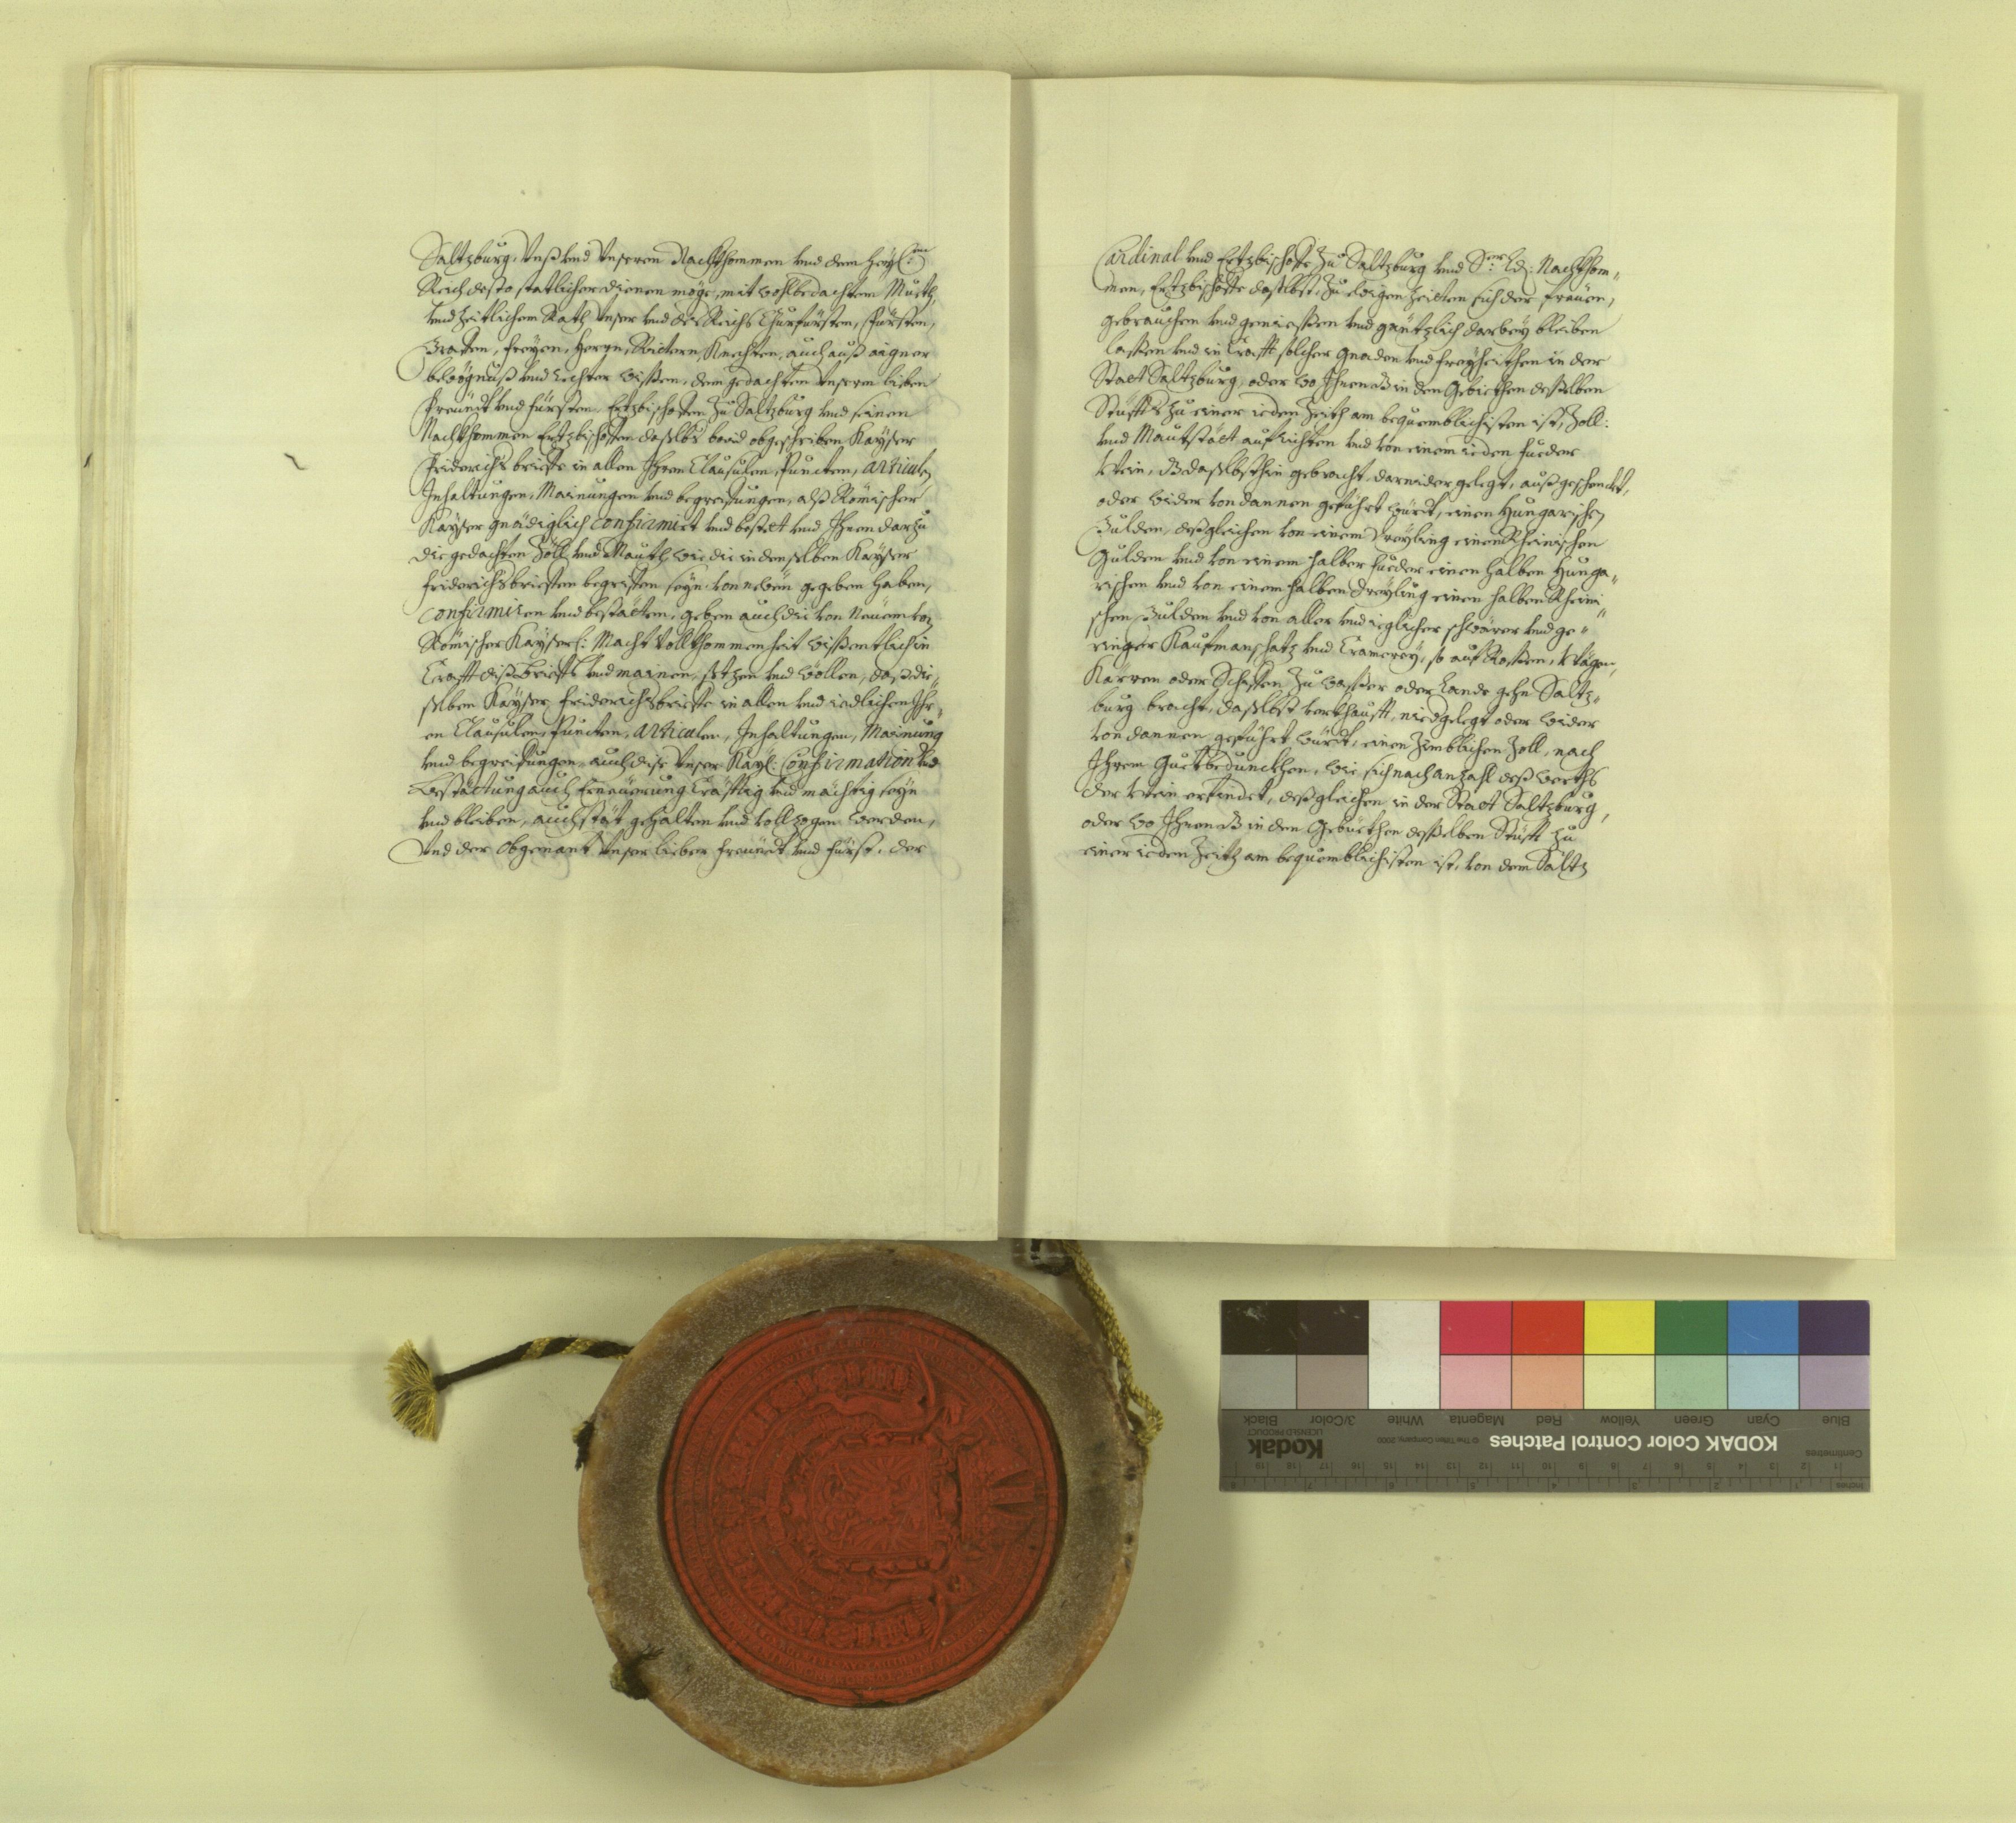 Saltzburg, Unß und Unseren Nachkhommen und dem Heyl:en
Reich desto statlicher dienen möge, mit wohlbedachtem Mueth,
und Zeitlichem Rath Unser und des Reichs Churfürsten, Fürsten,
Grafen, Freyen, Herrn, Rittern, Knechten, auch auß aigner
bewögnuß und rechter wissen, dem gedachten Unserm lieben
Freundt und Fürsten, Ertzbischoffen zu Saltzburg und seinen
Nachkhommen Ertzbischoffen daselbs beid obgeschriben Kayser
Friderichs brieffe in allen Ihren Clausulen, Puncten, Articuln,
Inhaltungen, Mainungen und begreifungen, alß Römischer
Kayser gnädiglich confirmirt und bestett und Ihnen darzu
die gedachten Zöll und Mauth, wie die in denselben Kayser
Friderichs brieffen begriffen seyn von newem gegeben haben,
confirmiren und bestätten, geben auch die von Neuem von
Römischer Kayserl: Macht Vollkhommenheit wissentlich in
Crafft diß brieffs und mainen, setzen und wöllen, daß die-
selben Kayser Friderichs brieffe in allen und iedlichen Ihr-
en Clausulen, Puncten, Articulen, Inhaltungen, Mainung
und begreifungen, auch dise Unser Kayl: Confirmation und
Bestättung auch Erneuerung Cräfftig und mächtig seyn
und bleiben, auch stät gehalten und vollzogen werden,
Und der Obgenant Unser lieber Freundt und Fürst, der
Cardinal und Ertzbischoffe zu Saltzburg und S:er Ld: Nachkhom-
men, Ertzbischoffe daselbst, zu ewigen Zeitten sich der freuen,
gebrauchen und geniessen und gäntzlich darbey bleiben
lassen und in Crafft solcher Gnaden und Freyheithen in der
Statt Saltzburg, oder wo Ihnen Es in den Gebiethen desselben
Stüffts zu einer ieden Zeith am bequemblichisten ist, Zoll:
und Mautstätt aufrichten und von einem ieden Fueder
Wein, Es daselbsthin gebracht, darnider gelegt, außgeschenckt,
oder wider von dannen geführt würdt, einen Hungarischen
Gulden, deßgleichen von einem Dreyling einen Rheinischen
Gulden und von einem halben Fueder einen halben Hunga-
rischen und von einem halben Dreyling einen halben Rheini-
schen Gulden und von aller und ieglicher schwärer und ge-
ringer Kaufmanschatz und Cramerey, so auf Rossen, Wägen,
Kärren oder Schiffen zu Wasser oder Lande gehn Saltz-
burg bracht, daselbst verkhaufft, nidgelegt oder wider
von dannen geführt würdt, einen Zimblichen Zoll, nach
Ihrem Guetbeduncken, wie sich nach anzahl deß werths
der Wein erfindet, deßgleichen in der Statt Saltzburg,
oder wo Ihnen Es in den Gebüethen desselben Stüfft zu
einer ieden Zeith am bequemblichisten ist, von dem Saltz
KODAK Color Control Patches
© The Tiffen Company, 2000
Kodak
LICENSED PRODUCT
Blue Cyan Green Yellow Red Magenta White 3/Color Black
Centimetres
Inches